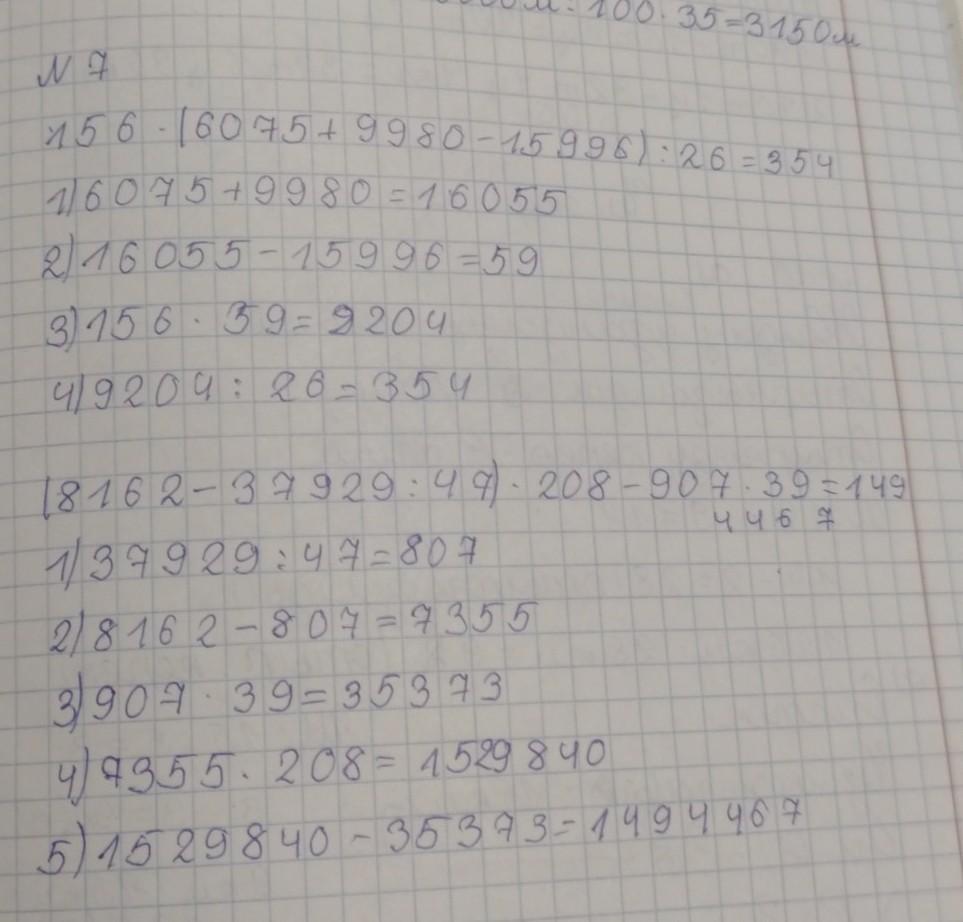 100 · 35 = 3150м
N 7
156 · (6075 + 9980 - 15996) : 26 = 354
1) 6075 + 9980 = 16055
2) 16055 - 15996 = 59
3) 156 · 59 = 9204
4) 9204 : 26 = 354
(8162 - 37929 : 47) · 208 - 907 · 39 = 149
4467
1) 37929 : 47 = 807
2) 8162 - 807 = 7355
3) 907 · 39 = 35373
4) 7355 · 208 = 1529840
5) 1529840 - 35373 = 1494467